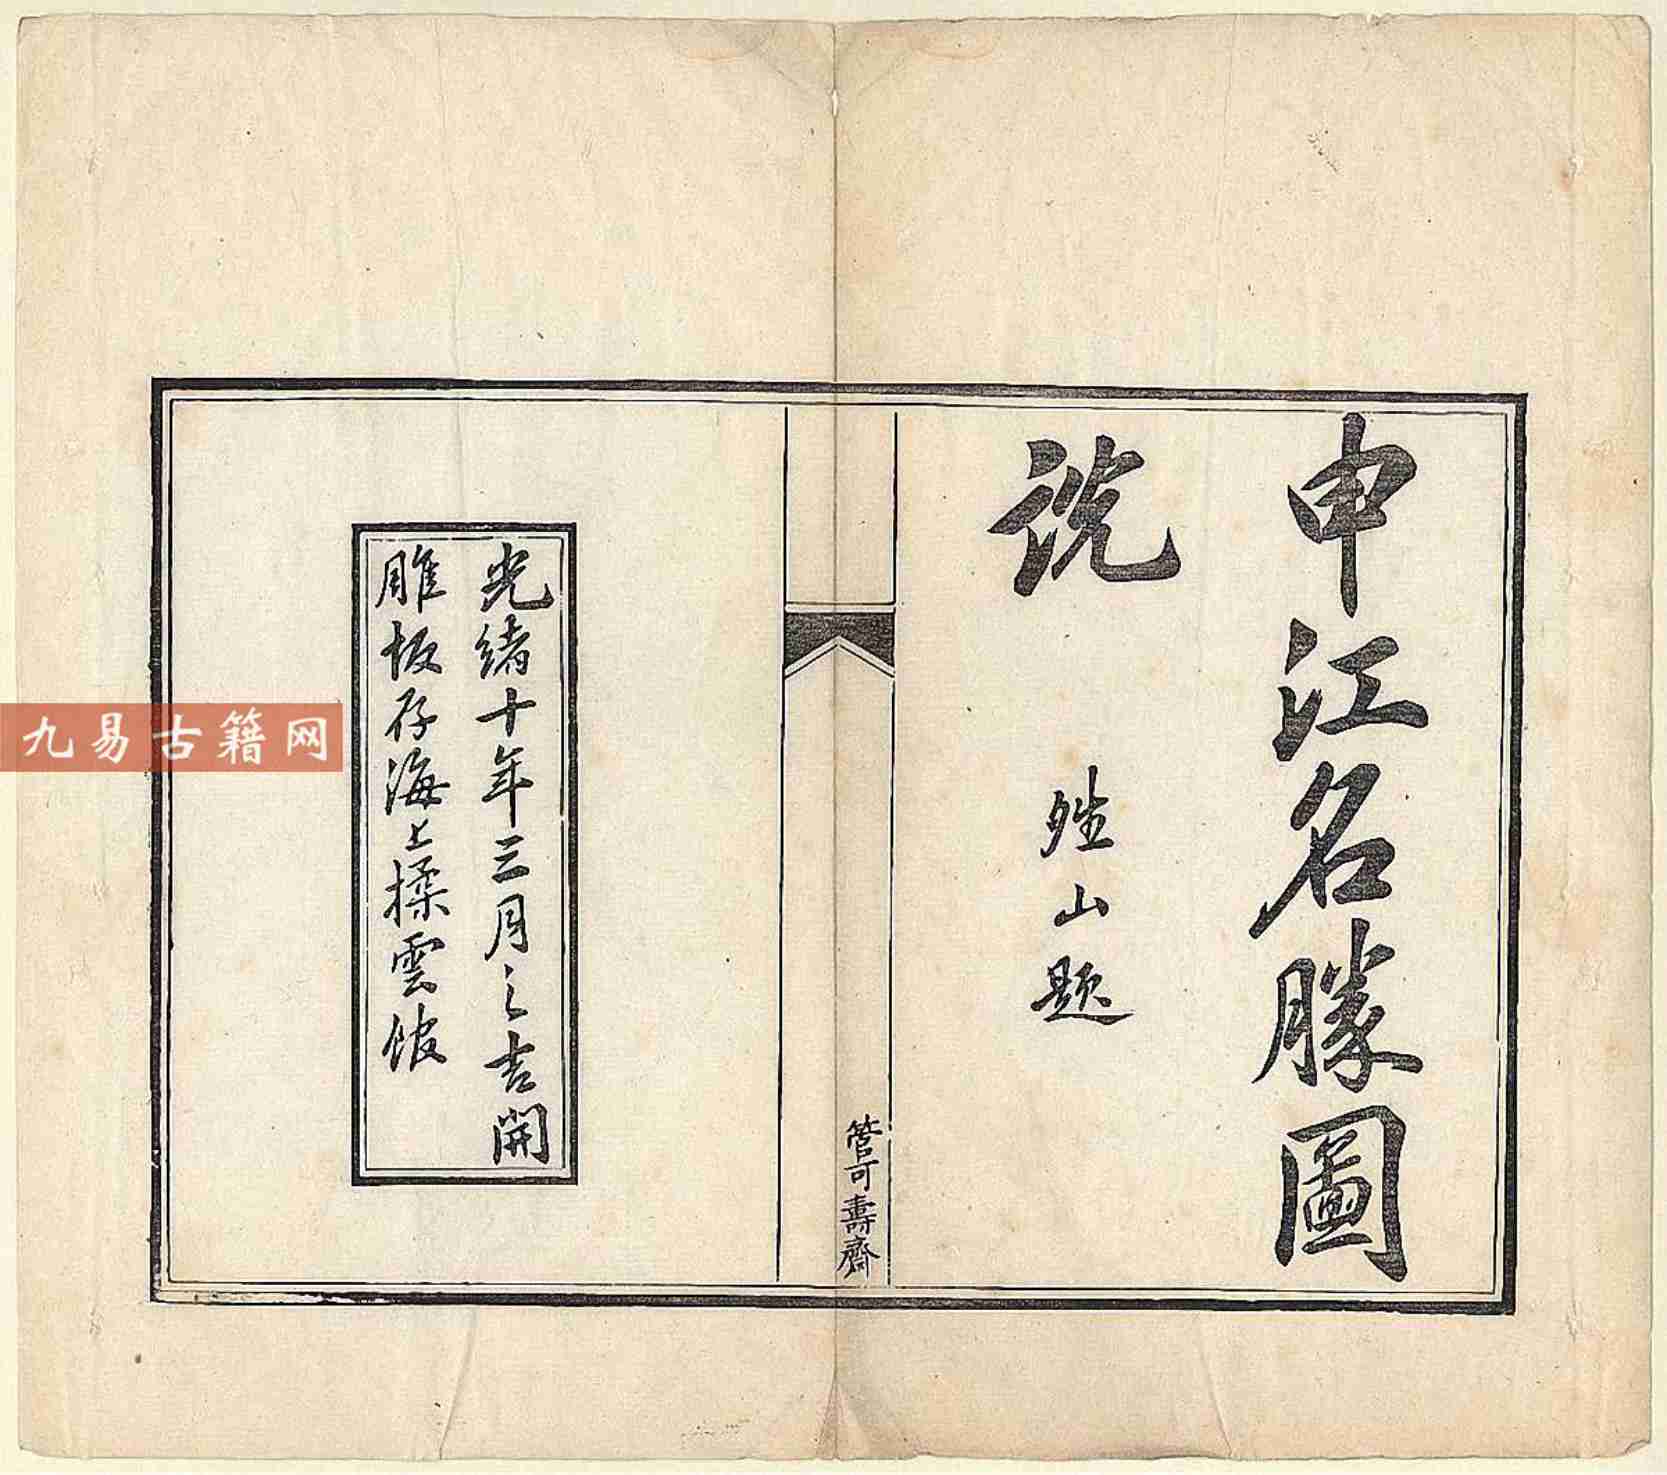 申江名勝圖
說
山題
管可壽齋
光緒十年三月之吉開
雕板存海上揉雲館
九易古籍网